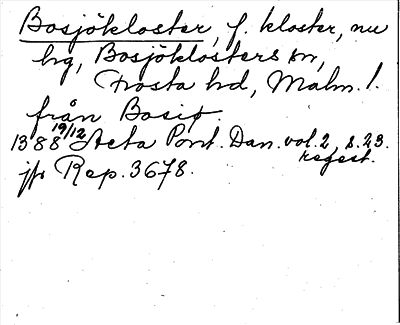 Bosjökloster, f. kloster, nu
hg, Bosjöklosters sn,
Frosta hd, Malm. l.
från Bosiø.
1388 19/12 Acta Pont. Dan. vol. 2, s. 23.
regest.
jfr Rep. 3678.